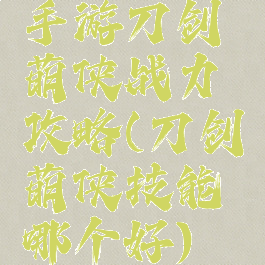 手游刀剑
萌侠战力
攻略(刀剑
萌侠技能
哪个好)